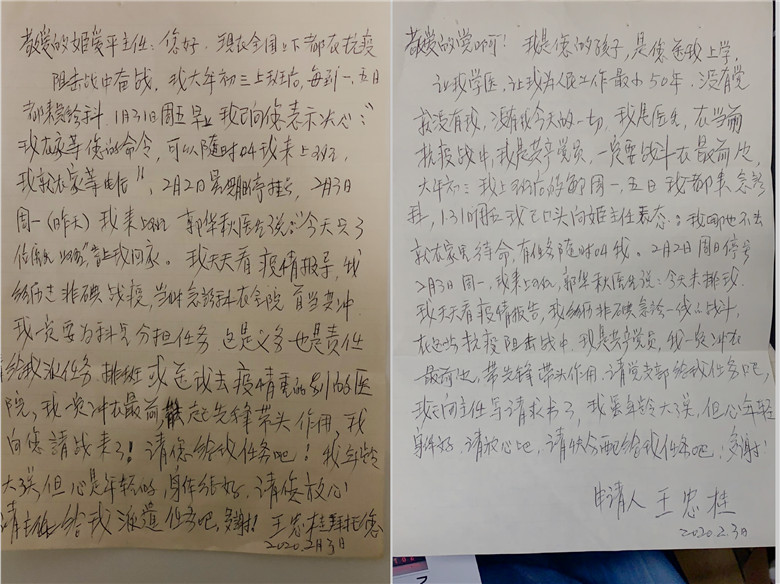 敬爱的姬爱平主任：您好．现在全国上下都在抗疫
阻击战中奋战．我大年初三上班后，每到一、五日
都来急诊科．1月31日周五早上我已向您表示决心：“
我在家等您的命令，可以随时叫我来上班，
我就在家等电话”，2月2日星期日停挂号，2月3日
周一（昨天）我来上班 郭华秋医生说：“今天只3
位医生 ，让我回家．我天天看疫情报导，我
经历过非碘战役，当时急诊科在全院首当其冲
我一定要为科室分担任务 这是义务也是责任
给我派任务 排班 或送我去疫情重的别的医
院，我一定冲在最前，起先锋带头作用，我
向您請战来了！请您给我任务吧！我年龄
大些，但心是年轻的，身体很好．请您放心
请主任给我派遣任务吧，多谢！王忠桂拜托您
2020.2月3日
敬爱的党啊！我是您的孩子，是您送我上学，
让我学医，让我为人民工作最少50年．没有党
就没有我，没有我今天的一切，我是医生，在当前
抗疫战中，我是共产党员，一定要战斗在最前边，
大年初三我上班后 周一、五日我都来急诊
科，1.31周五我已口头向姬主任表态：我哪也不去
就在家里待命，有任务随时叫我．2月2日周日停号
2月3日周一，我来上班，郭华秋医生说：今天未排我．
我天天看疫情报告，我经历非碘急诊一线的战斗，
在这些抗疫阻击战中．我是共产党员，我一定冲在
最前边，带先锋带头作用．请党支部给我任务吧，
我已向主任写请求书了，我虽年龄大些，但心年轻
身体好．请放心吧，请快分配给我任务吧，多谢！
申请人 王忠桂
2020.2.3日